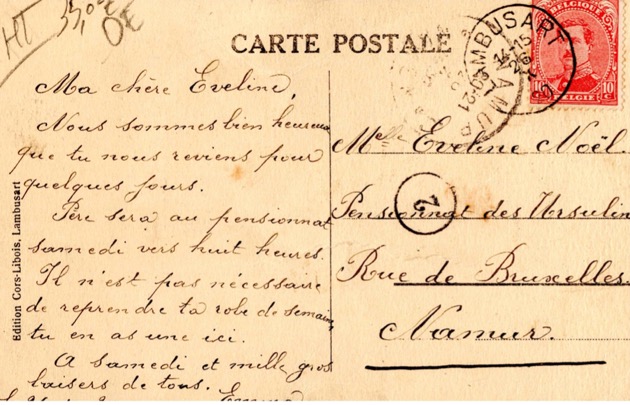 HT 35,0
CARTE POSTALE
LAMBUSART
15
26
NAMUR
20-21
BELGIQUE
10 C
10 C
BELGIE
Ma chère Eveline,
Nous sommes bien heureux
que tu nous reviens pour
quelques jours.
Père sera au pensionnat
samedi vers huit heures.
Il n'est pas nécessaire
de reprendre ta robe de semaine,
tu en as une ici.
A samedi et mille gros
baisers de tous.
Melle Eveline Noël.
Pensionnat des Ursulin
Rue de Bruxelles.
Namur.
Edition Cors-Libois, Lambusart